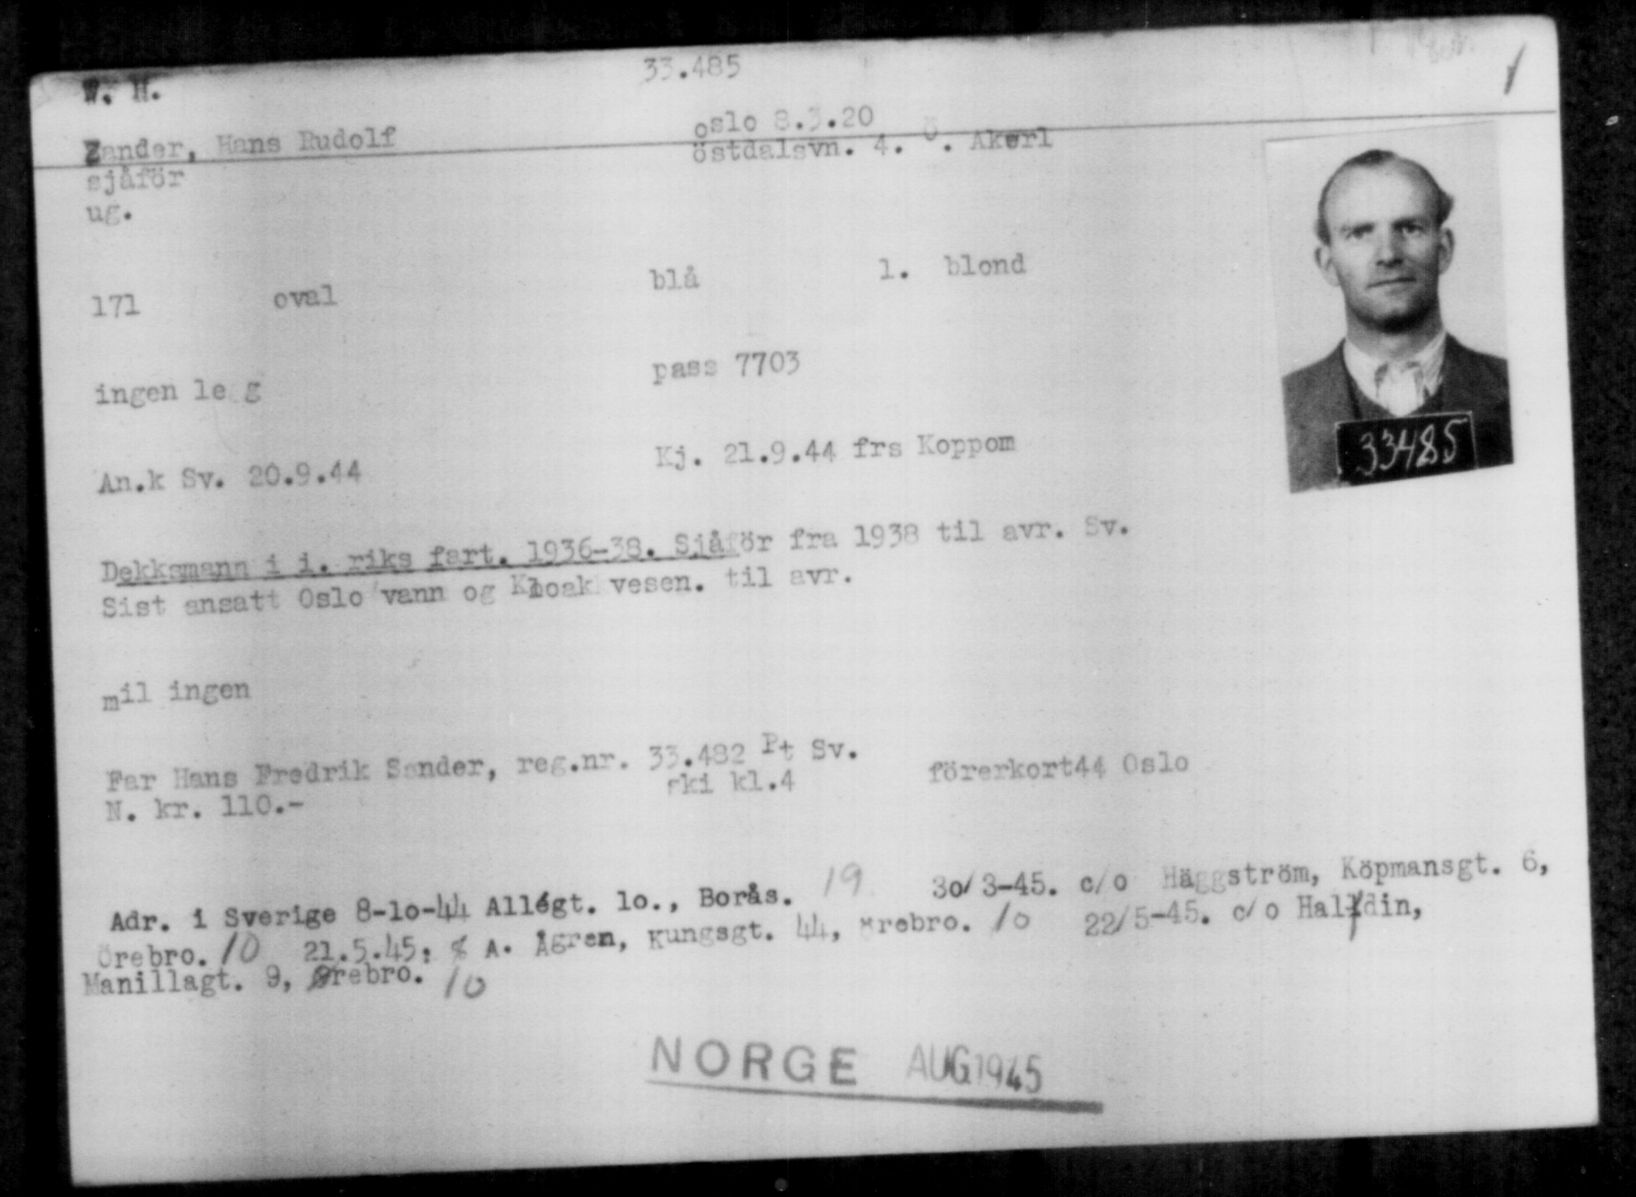 W. H.
33.485
1
Zander, Hans Rudolf
oslo 8.3.20
sjåför
östdalsvn. 4. Ö. Akerl
ug.
171 oval blå l. blond
ingen le g pass 7703
An.k Sv. 20.9.44 Kj. 21.9.44 frs Koppom
Dekksmann i i. riks fart. 1936-38. Sjåför fra 1938 til avr. Sv.
Sist ansatt Oslo vann og Kloak vesen. til avr.
mil ingen
Far Hans Fredrik Sander, reg.nr. 33.482 Pt Sv.
N. kr. 110.- ski kl.4 förerkort44 Oslo
Adr. i Sverige 8-10-44 Allégt. 10., Borås. 19 30/3-45. c/o Häggström, Köpmansgt. 6,
Örebro. 10 21.5.45: % A. Ågren, Kungsgt. 44, Örebro. 10 22/5-45. c/o Halldin,
Manillagt. 9, Ørebro. 10
NORGE AUG 1945
33485